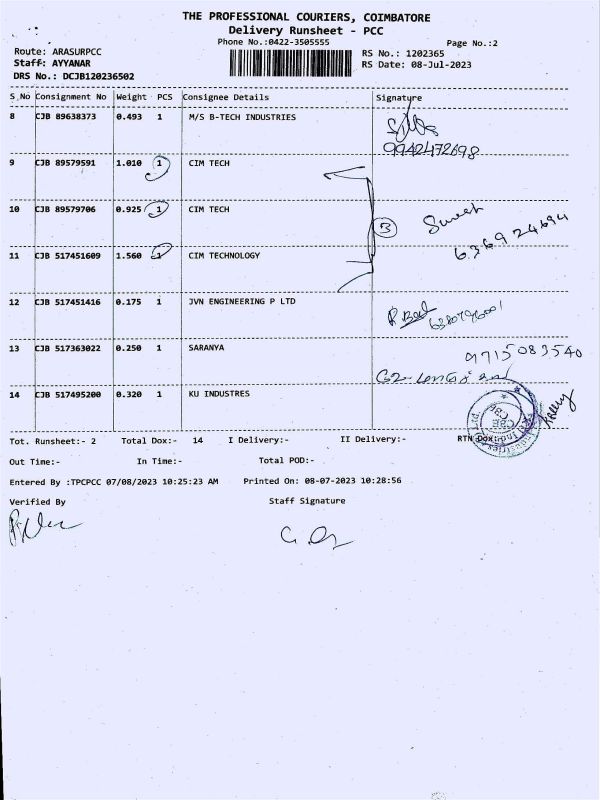 THE PROFESSIONAL COURIERS, COIMBATORE
Delivery Runsheet - PCC
Phone No.:0422-3505555
Page No.:2
Route: ARASURPCC
RS No.: 1202365
Staff: AYYANAR
RS Date: 08-Jul-2023
DRS No.: DCJB120236502
S_No Consignment No Weight PCS Consignee Details Signature
8 CJB 89638373 0.493 1 M/S B-TECH INDUSTRIES
9942472698
9 CJB 89579591 1.010 1 CIM TECH
10 CJB 89579706 0.925 1 CIM TECH
3 Suresh
636924694
11 CJB 517451609 1.560 1 CIM TECHNOLOGY
12 CJB 517451416 0.175 1 JVN ENGINEERING P LTD
13 CJB 517363022 0.250 1 SARANYA
9715083540
14 CJB 517495200 0.320 1 KU INDUSTRES
CBE
Tot. Runsheet:- 2 Total Dox:- 14 I Delivery:- II Delivery:- RTN Dox:-
Out Time:- In Time:- Total POD:-
Entered By :TPCPCC 07/08/2023 10:25:23 AM Printed On: 08-07-2023 10:28:56
Verified By Staff Signature